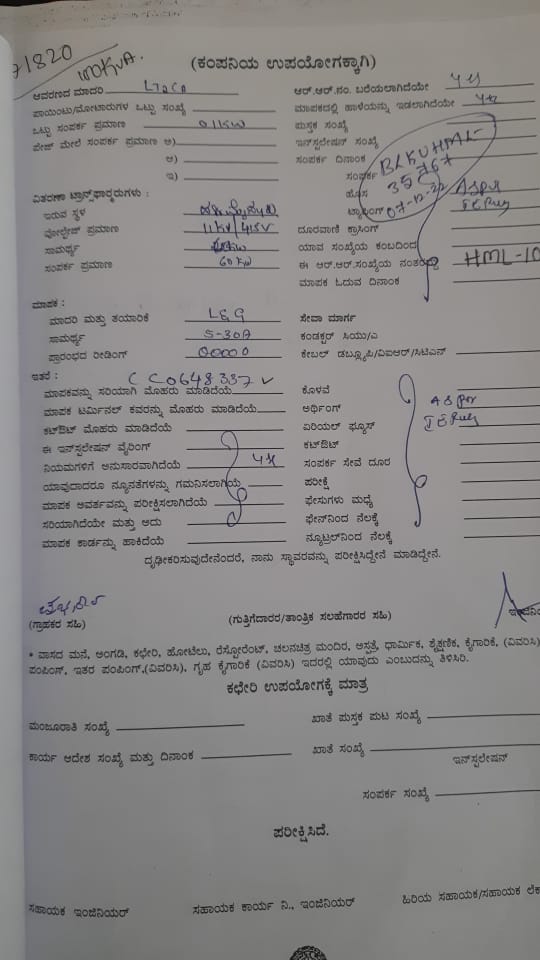 71820
100KVA.
(ಕಂಪನಿಯ ಉಪಯೋಗಕ್ಕಾಗಿ)
ಆವರಣದ ಮಾದರಿ ಆರ್.ಆರ್.ನಂ. ಬರೆಯಲಾಗಿದೆಯೇ yes
ಪಾಯಿಂಟು/ಮೋಟಾರುಗಳ ಒಟ್ಟು ಸಂಖ್ಯೆ ಮಾಪಕದಲ್ಲಿ ಹಾಳೆಯನ್ನು ಇಡಲಾಗಿದೆಯೇ yes
ಒಟ್ಟು ಸಂಪರ್ಕ ಪ್ರಮಾಣ 01KW ಪುಸ್ತಕ ಸಂಖ್ಯೆ
ಪೇಜ್ ಮೇಲೆ ಸಂಪರ್ಕ ಪ್ರಮಾಣ ಅ) ಇನ್‌ಸ್ಟಲೇಷನ್ ಸಂಖ್ಯೆ
ಆ) ಸಂಪರ್ಕ ದಿನಾಂಕ
ಇ) ಸಂಪರ್ಕ BLKUHML-
ಹೊಸ 35767
ವಿತರಣಾ ಟ್ರಾನ್ಸ್‌ಫಾರ್ಮರುಗಳು : ಟ್ಯಾಪಿಂಗ್ 07-12-22
ಇರುವ ಸ್ಥಳ
ವೋಲ್ಟೇಜ್ ಪ್ರಮಾಣ 11KV/415V ದೂರವಾಣಿ ಕ್ರಾಸಿಂಗ್
ಸಾಮರ್ಥ್ಯ ಯಾವ ಸಂಖ್ಯೆಯ ಕಂಬದಿಂದ
ಸಂಪರ್ಕ ಪ್ರಮಾಣ 60KW ಈ ಆರ್.ಆರ್.ಸಂಖ್ಯೆಯ ನಂತರ HML-10
ಮಾಪಕ ಓದುವ ದಿನಾಂಕ
ಮಾಪಕ :
ಮಾದರಿ ಮತ್ತು ತಯಾರಿಕೆ L&G ಸೇವಾ ಮಾರ್ಗ
ಸಾಮರ್ಥ್ಯ 5-30A ಕಂಡಕ್ಟರ್ ಸಿಯು/ಎ
ಪ್ರಾರಂಭದ ರೀಡಿಂಗ್ 00000 ಕೇಬಲ್ ಡಬ್ಲ್ಯೂಪಿ/ವಿಐಆರ್/ಸಿಟಿಎಸ್
ಇತರೆ : CC0648337
ಮಾಪಕವನ್ನು ಸರಿಯಾಗಿ ಮೊಹರು ಮಾಡಿದೆಯೆ ಕೊಳವೆ
ಮಾಪಕ ಟರ್ಮಿನಲ್ ಕವರನ್ನು ಮೊಹರು ಮಾಡಿದೆಯೆ ಅರ್ಥಿಂಗ್
ಕಟ್‌ಔಟ್ ಮೊಹರು ಮಾಡಿದೆಯೆ ಏರಿಯಲ್ ಫ್ಯೂಸ್
ಈ ಇನ್‌ಸ್ಟಲೇಷನ್ ವೈರಿಂಗ್ ಕಟ್‌ಔಟ್
ನಿಯಮಗಳಿಗೆ ಅನುಸಾರವಾಗಿದೆಯೆ yes ಸಂಪರ್ಕ ಸೇವೆ ದೂರ
ಯಾವುದಾದರೂ ನ್ಯೂನತೆಗಳನ್ನು ಗಮನಿಸಲಾಗಿದೆಯೆ ಪರೀಕ್ಷೆ
ಮಾಪಕ ಅವರ್ತವನ್ನು ಪರೀಕ್ಷಿಸಲಾಗಿದೆಯೆ ಫೇಸುಗಳು ಮಧ್ಯೆ
ಸರಿಯಾಗಿದೆಯೇ ಮತ್ತು ಅದು ಫೇಸ್‌ನಿಂದ ನೆಲಕ್ಕೆ
ಮಾಪಕ ಕಾರ್ಡನ್ನು ಹಾಕಿದೆಯೆ ನ್ಯೂಟ್ರಲ್‌ನಿಂದ ನೆಲಕ್ಕೆ
ದೃಢೀಕರಿಸುವುದೇನೆಂದರೆ, ನಾನು ಸ್ಥಾವರವನ್ನು ಪರೀಕ್ಷಿಸಿದ್ದೇನೆ ಮಾಡಿದ್ದೇನೆ.
(ಗ್ರಾಹಕರ ಸಹಿ) (ಗುತ್ತಿಗೆದಾರರ/ತಾಂತ್ರಿಕ ಸಲಹೆಗಾರರ ಸಹಿ)
* ವಾಸದ ಮನೆ, ಅಂಗಡಿ, ಕಛೇರಿ, ಹೋಟೆಲು, ರೆಸ್ಟೋರೆಂಟ್, ಚಲನಚಿತ್ರ ಮಂದಿರ, ಅಸ್ಪತ್ರೆ, ಧಾರ್ಮಿಕ, ಶೈಕ್ಷಣಿಕ, ಕೈಗಾರಿಕೆ, (ವಿವರಿಸಿ)
ಪಂಪಿಂಗ್, ಇತರ ಪಂಪಿಂಗ್,(ವಿವರಿಸಿ), ಗೃಹ ಕೈಗಾರಿಕೆ (ವಿವರಿಸಿ) ಇದರಲ್ಲಿ ಯಾವುದು ಎಂಬುದನ್ನು ತಿಳಿಸಿರಿ.
ಕಛೇರಿ ಉಪಯೋಗಕ್ಕೆ ಮಾತ್ರ
ಮಂಜೂರಾತಿ ಸಂಖ್ಯೆ ಖಾತೆ ಪುಸ್ತಕ ಪುಟ ಸಂಖ್ಯೆ
ಕಾರ್ಯ ಆದೇಶ ಸಂಖ್ಯೆ ಮತ್ತು ದಿನಾಂಕ ಖಾತೆ ಸಂಖ್ಯೆ
ಇನ್‌ಸ್ಟಲೇಷನ್
ಸಂಪರ್ಕ ಸಂಖ್ಯೆ
ಪರೀಕ್ಷಿಸಿದೆ.
ಸಹಾಯಕ ಇಂಜಿನಿಯರ್ ಸಹಾಯಕ ಕಾರ್ಯ ನಿ., ಇಂಜಿನಿಯರ್ ಹಿರಿಯ ಸಹಾಯಕ/ಸಹಾಯಕ ಲೆಕ